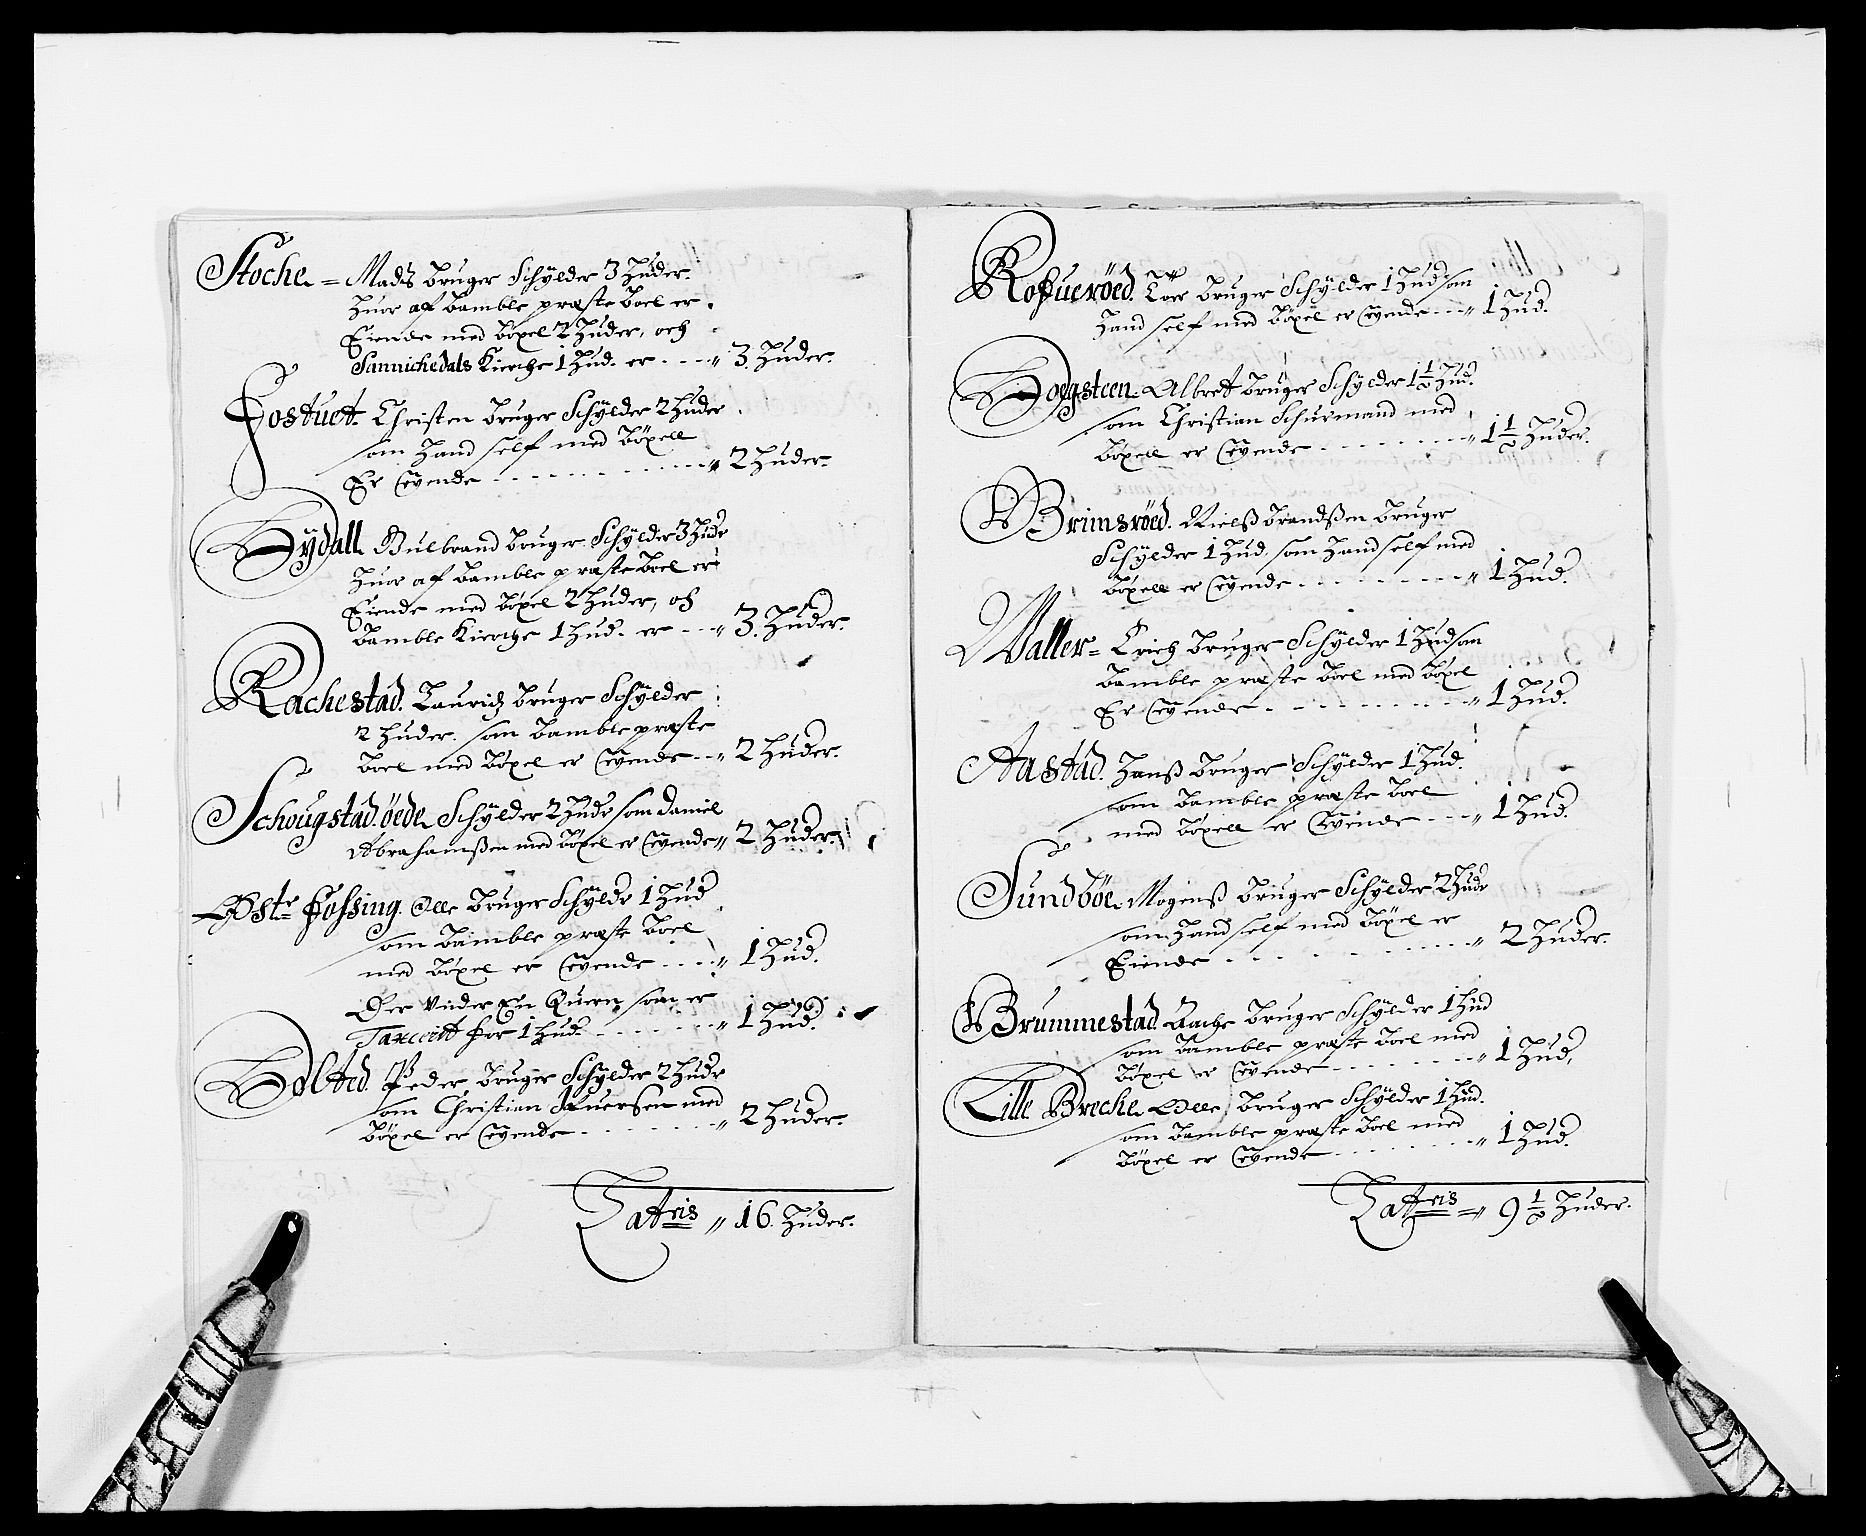 Stoche = Madtz bruger Schÿlder 3 Huder.
Huor af Bamble præste boel er
Eiende med böxel 2 Huder, och
Sannichedals Kierche 1 Hud. er - - - „ 3. Huder.
Fostuet. Christen bruger Schÿlder 2 Huder
som Hand self med böxell
Er Eyende - - - „ 2 Huder.
Dÿdall Gulbrand bruger Schÿlder 3 Hudr
Huor af Bamble præste boel er
Eiende med böxel 2 Huder, och
Bamble Kierche 1 Hud. er - - „ 3. Huder.
Rachestad. Lauridz bruger Schÿlder
2 Huder. som Bamble præste
boel med böxel er Eyende - - „ 2 Huder.
Schougstad öede Schÿlder 2 Hudr som Daniel
Abrahamßen med böxel er Eyende „ 2 Huder.
Østr Fossing. Olle bruger Schÿldr 1 Hud
som Bamble præste boel
med böxel er Eyende - - - „ 1 Hud.
Der Vnder En Quern som er
Taxerit for 1 Hud. - - - „ 1 Hud.
Holted. Peder bruger Schÿlder 2 Hudr
som Christian Ifuersen med
böxel er Eyende - - - „ 2 Huder.
Lateris „ 16. Huder.
Rosueröed. Tor bruger Schÿlder 1 Hud som
Hand self med böxel er Eyende - - „ 1 Hud.
Dogsteen. Albret bruger Schÿlder 1 1/2 Hud.
som Christian Schurmand med
böxell er Eyende - - - „ 1 1/2 Huder.
Brimsröed. Nielß brandßen bruger
Schÿlder 1 Hud. som Hand self med
böxell er Eyende - - - „ 1 Hud.
Valler = Erich bruger Schÿlder 1 Hud som
Bamble præste boel med böxel
Er Eyende - - - „ 1 Hud.
Aastad. Hanß bruger Schÿlder 1 Hud.
som Bamble præste boel
med böxell er Eyende - - - „ 1 Hud.
Sundböe. Mogenß bruger Schÿlder 2 Hudr
som Hand self med böxel er
Eiende - - - „ 2 Huder.
Brummestad Aache bruger Schÿlder 1 Hud
som Bamble præste boel med
böxel er Eyende - - - „ 1 Hud,
Lille Breche. Olle bruger Schÿlder 1 Hud.
som Bamble præste boel med
böxel er Eyende - - - „ 1 Hud.
Lateris = „ 9 1/2 Huder.